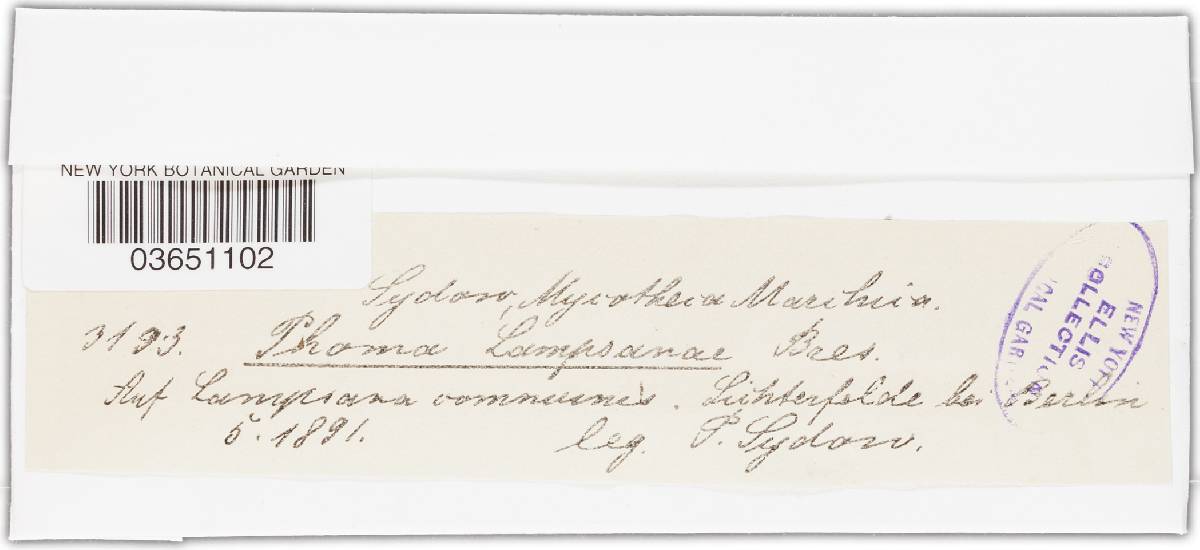 NEW YORK BOTANICAL GARDEN
03651102
Sydow, Mycotheca Marchica.
3193. Phoma Lampsanae Bres.
Auf Lampsana communis. Lichterfelde bei Berlin
5. 1891. leg. P. Sydow.
NEW YO
ELLIS
COLLECTION
ICAL GAR